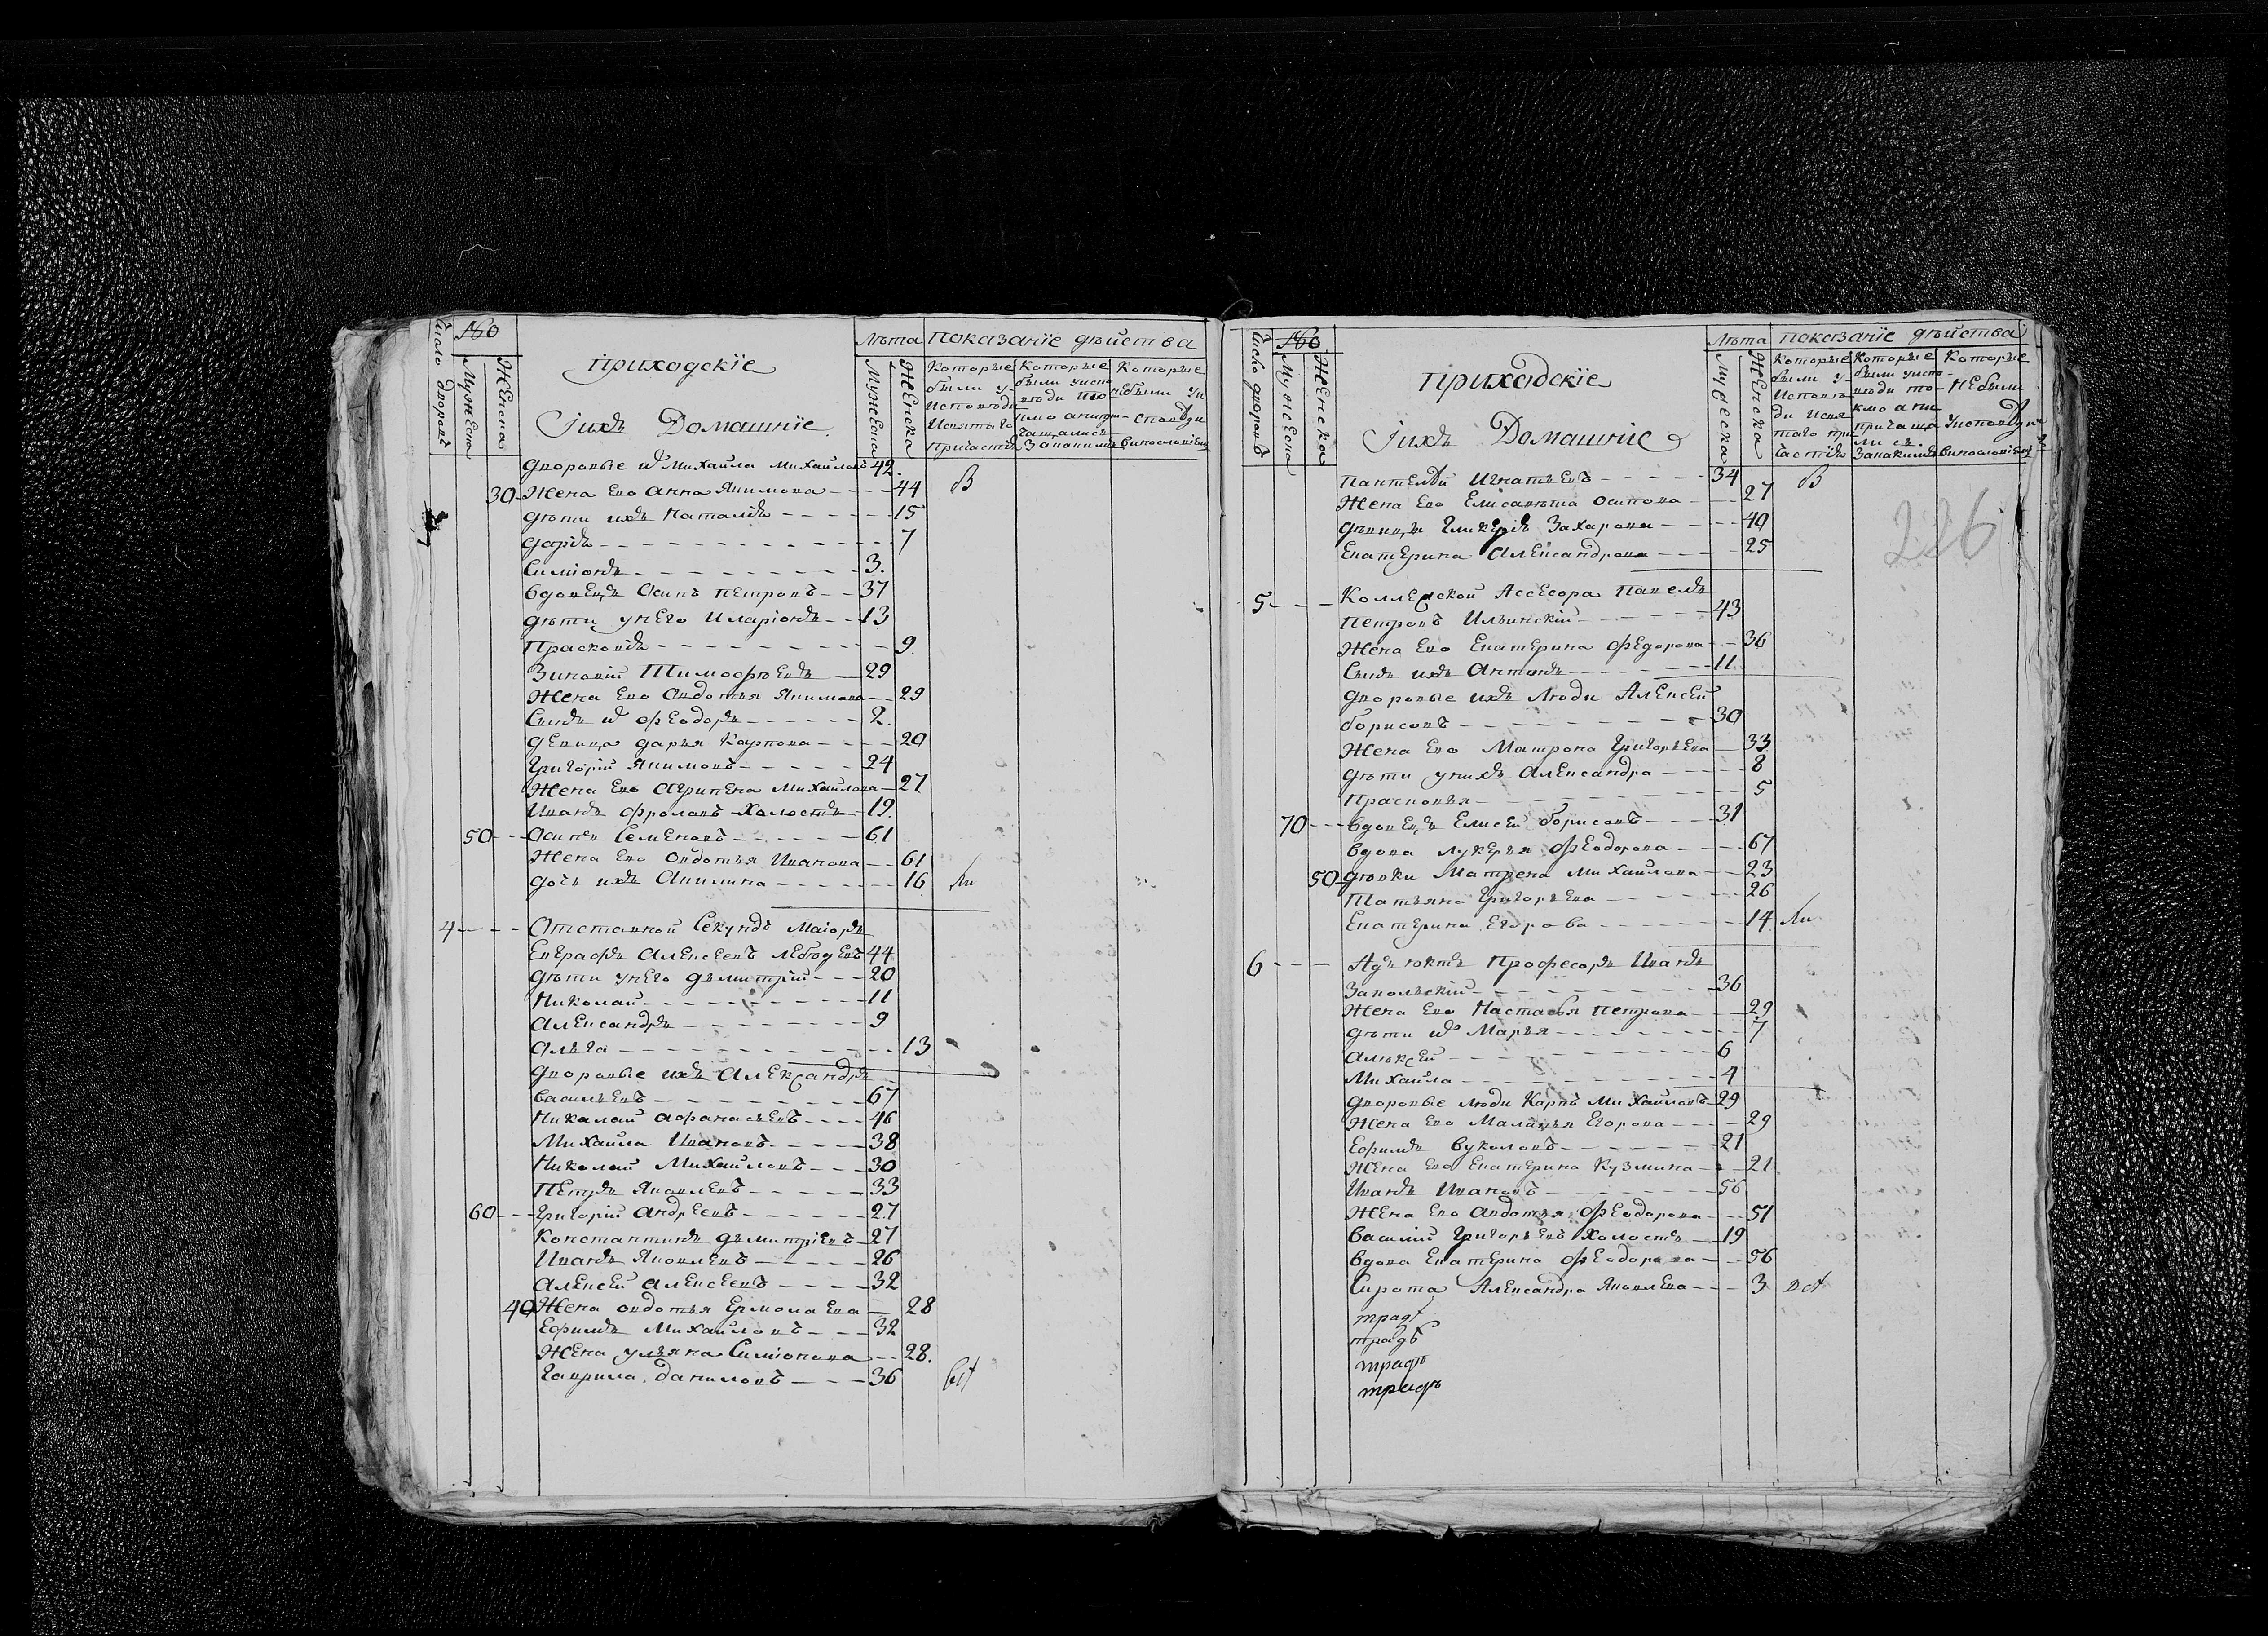 Число дворовъ
№о
Мужеска
Женска
приходскїе
Іихъ Домашнїе
Лѣта
Мужеска
Женска
показанїе дѣйства
Которые были у исповѣди Исвятаго причастїѧ
Которые были уиспо вѣди що
Которые
дворовые Михайла Михайловъ 42.
30 Жена Ево Анна Якимова 44 В
дѣти ихъ Наталїѧ 15
дарїѧ 7
Симїонъ 3.
вдовецъ Осипъ Петровъ 37
дѣти унего Иларїонъ 13
Прасковїѧ 9
Зиновїй Тимофѣевъ 29
Жена Ево Авдотья Якимова 29
Сынъ феодоръ 2.
девица дарья Карпова 20
Григорїй Якимовъ 24
Жена Ево Агрипена Михайлова 27
Иванъ Фроловъ Холостъ 19.
50 Осипъ Семеновъ 61
Жена Ево Овдотья Иванова 61
дочь ихъ Акилина 16
4 Отставной Секундъ Маїоръ
Евграфъ Алексеевъ Лебедевъ 44
дѣти унего дъмитрїй 20
Николай 11
Александръ 9
Ольга 13
дворовые ихъ Александръ
васильевъ 67
Николай Афанасьевъ 46
Михайла Ивановъ 38
Николай Михайловъ 30
Петръ Яковлевъ 33
60 Григорїй Андреевъ 27
Константинъ дъмитрїевъ 27
Иванъ Яковлевъ 26
Алексей Алексеевъ 32
40 Жена овдотья Ермолаева 28
Ефимъ Михайловъ 32
Жена ульяна Симїонова 28.
Гаврила даниловъ 36
Число дворовъ
№о
Мужеска
Женска
приходскїе
Іихъ Домашнїе
Лѣта
Мужеска
Женска
показанїе дѣйства
Которые были у Исповѣди
Которые были
Которые Небыли
226
Пантелѣй Игнатьевъ 34 В
Жена Ево Елисавѣта Осипова 27
дѣвицы Гликерїѧ Захарова 40
Екатерина Александрова 25
5 Коллежской Ассесора Павелъ
Петровъ Ильинский 43
Жена Ево Екатерина Федорова 36
Сынъ ихъ Антонъ 11
дворовые ихъ Люди Алексей
борисовъ 30
Жена Ево Матрона Григорьева 33
дѣти унихъ Александра 8
Прасковья 5
70 вдовецъ Елисей борисовъ 31
вдова лукерья Феодорова 67
50 дѣвки Матрена Михайлова 23
Татьяна Григорьева 26
Екатерина Егорова 14
6 Адъюктъ Професоръ Иванъ
Запольскїй 36
Жена Ево Настасья Петрова 29
дѣти Марья 7
Алѣксей 6
Михайла 4
дворовые люди Карпъ Михайловъ 29
Жена Ево Маланья Егорова 29
Ефимъ вуколовъ 21
Жена Ево Екатерина Кузмина 21
Иванъ Ивановъ 56
Жена Ево Авдотья Феодорова 51
василий Григорьевъ Холостъ 19
вдова Екатерина Феодорова 56
Сирота Александра Яковлева 3